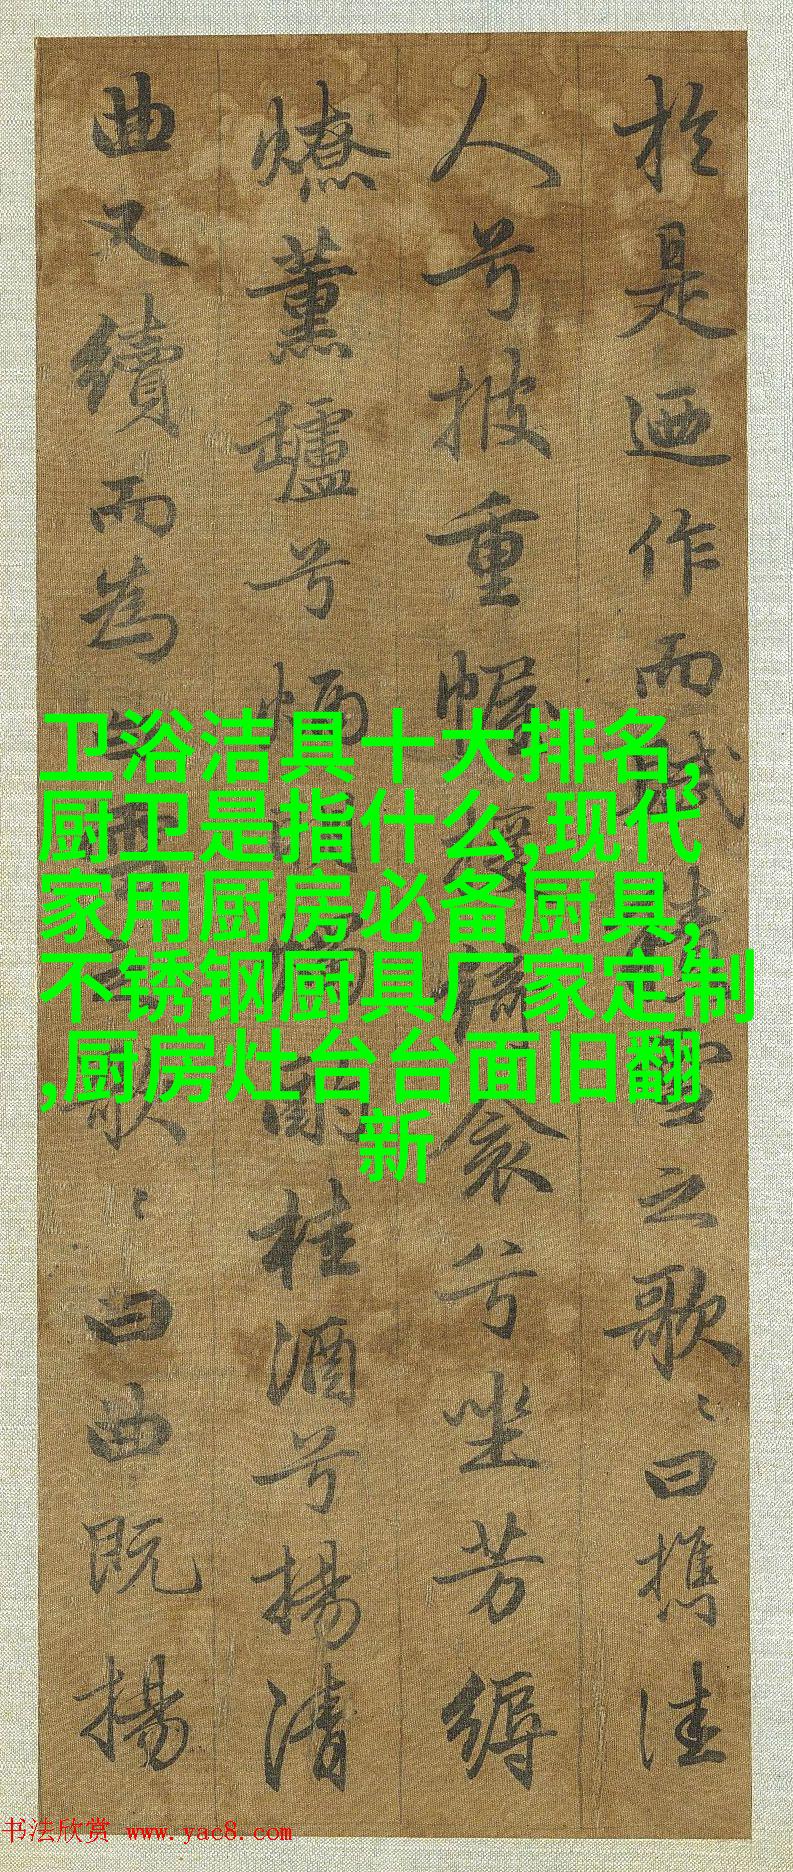 於是迺作而賦積雪之歌〻曰攜佳
人兮披重幄援綺衾兮坐芳縟
燎薰鑪兮炳明燭酌桂酒兮揚清
曲又續而為白雪之歌〻曰曲既揚
卫浴洁具十大排名,
厨卫是指什么,现代
家用厨房必备厨具,
不锈钢厨具厂家定制
,厨房灶台台面旧翻
新
书法欣赏 www.yac8.com